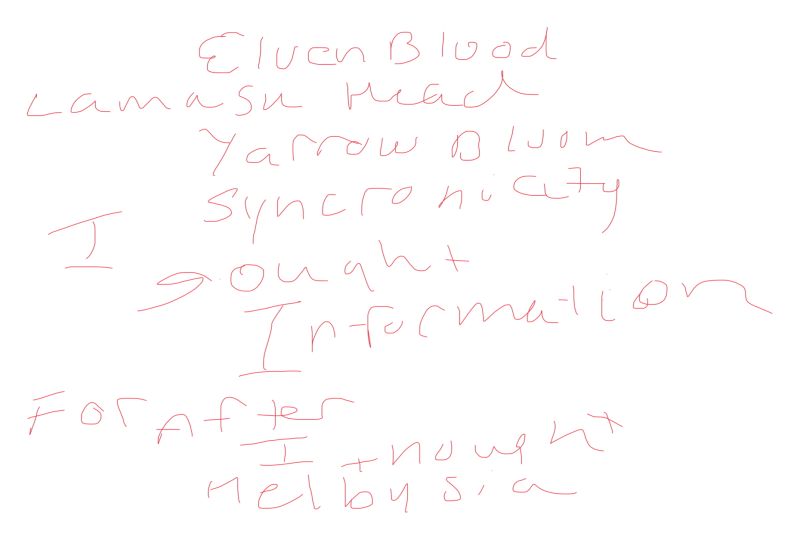 Elven Blood
Lamasu Head
Yarrow Bloom
Syncronicity
I sought
Information
For After
I thought
Melbysia